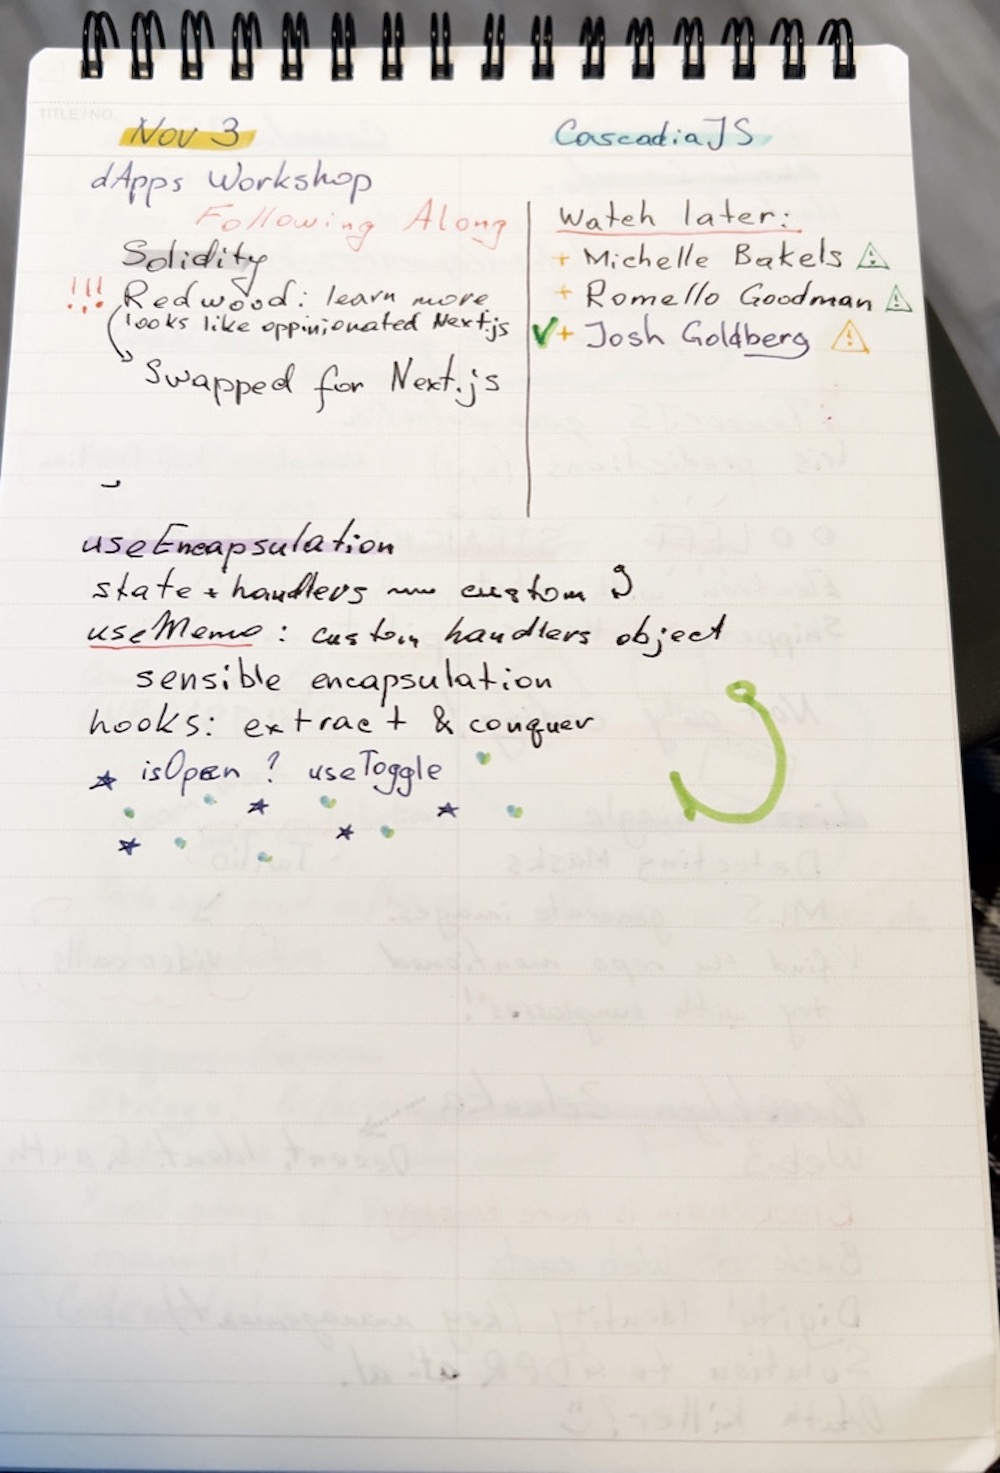 TITLE / NO.
Nov 3
CascadiaJS
dApps Workshop
Following Along
Solidity
!!! Redwood: learn more
looks like oppinionated Next.js
Swapped for Next.js
Watch later:
+ Michelle Bakels
+ Romello Goodman
✓ + Josh Goldberg
useEncapsulation
state + handlers custom
useMemo: custom handlers object
sensible encapsulation
hooks: extract & conquer
isOpen ? useToggle